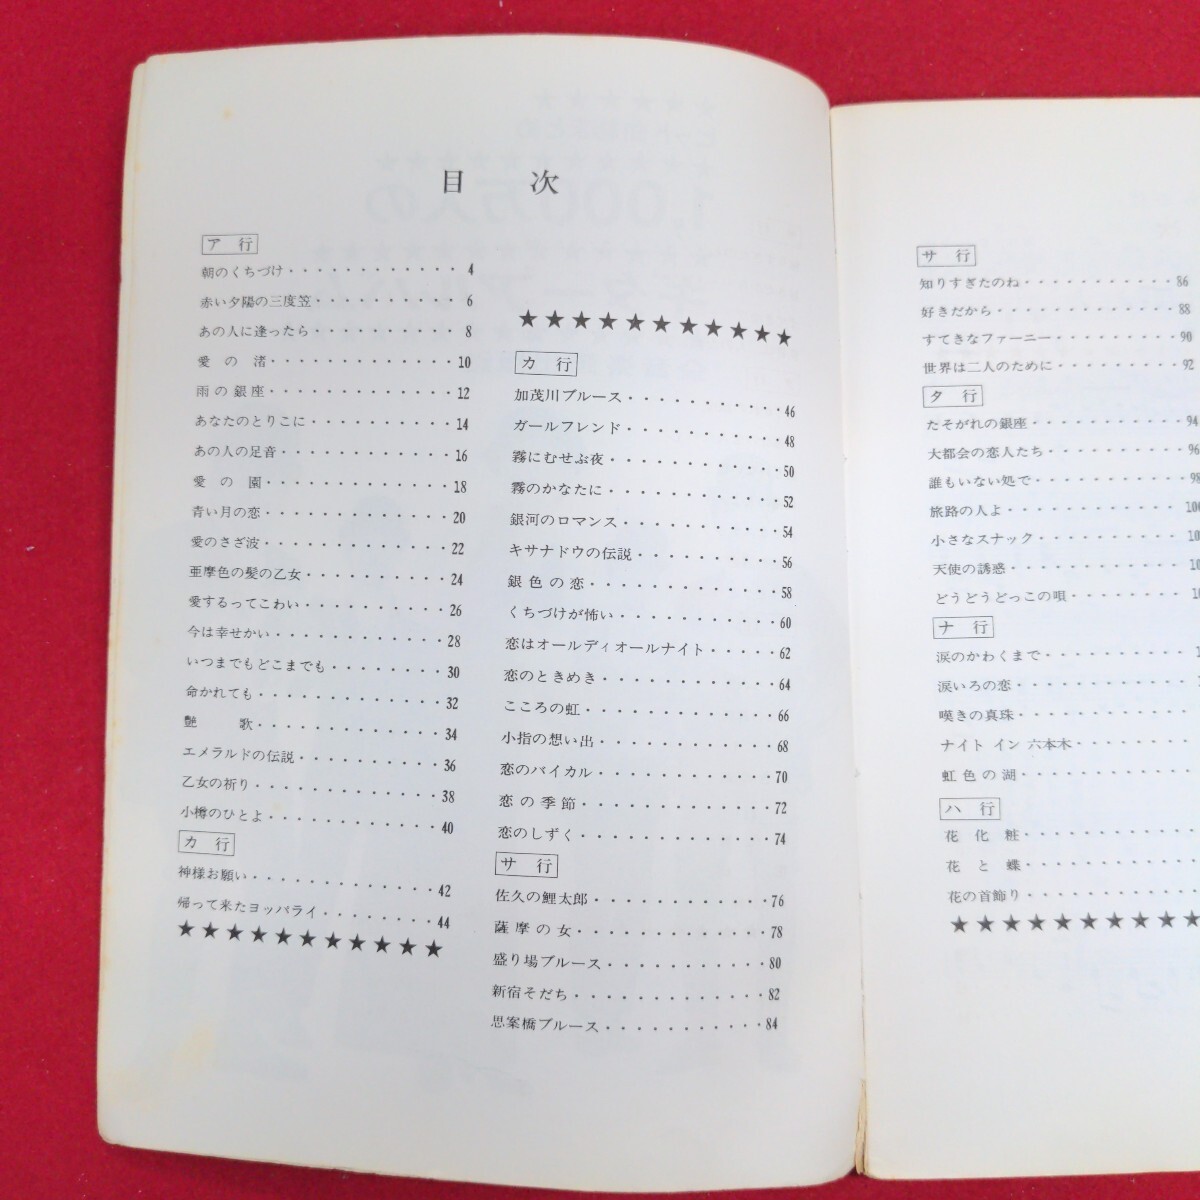 目　次
ア　行
朝のくちづけ・・・・・・・・・・・・・4
赤い夕陽の三度笠・・・・・・・・・・・6
あの人に逢ったら・・・・・・・・・・・8
愛　の　渚・・・・・・・・・・・・・・10
雨の銀座・・・・・・・・・・・・・・・12
あなたのとりこに・・・・・・・・・・・14
あの人の足音・・・・・・・・・・・・・16
愛　の　園・・・・・・・・・・・・・・18
青い月の恋・・・・・・・・・・・・・・20
愛のさざ波・・・・・・・・・・・・・・22
亜摩色の髪の乙女・・・・・・・・・・・24
愛するってこわい・・・・・・・・・・・26
今は幸せかい・・・・・・・・・・・・・28
いつまでもどこまでも・・・・・・・・・30
命かれても・・・・・・・・・・・・・・32
艶　　歌・・・・・・・・・・・・・・・34
エメラルドの伝説・・・・・・・・・・・36
乙女の祈り・・・・・・・・・・・・・・38
小樽のひとよ・・・・・・・・・・・・・40
カ　行
神様お願い・・・・・・・・・・・・・・42
帰って来たヨッパライ・・・・・・・・・44
★★★★★★★★★★★
★★★★★★★★★★★
カ　行
加茂川ブルース・・・・・・・・・・・・46
ガールフレンド・・・・・・・・・・・・48
霧にむせぶ夜・・・・・・・・・・・・・50
霧のかなたに・・・・・・・・・・・・・52
銀河のロマンス・・・・・・・・・・・・54
キサナドウの伝説・・・・・・・・・・・56
銀色の恋・・・・・・・・・・・・・・・58
くちづけが怖い・・・・・・・・・・・・60
恋はオールディオールナイト・・・・・62
恋のときめき・・・・・・・・・・・・・64
こころの虹・・・・・・・・・・・・・・66
小指の想い出・・・・・・・・・・・・・68
恋のバイカル・・・・・・・・・・・・・70
恋の季節・・・・・・・・・・・・・・・72
恋のしずく・・・・・・・・・・・・・・74
サ　行
佐久の鯉太郎・・・・・・・・・・・・・76
薩摩の女・・・・・・・・・・・・・・・78
盛り場ブルース・・・・・・・・・・・・80
新宿そだち・・・・・・・・・・・・・・82
思案橋ブルース・・・・・・・・・・・・84
サ　行
知りすぎたのね・・・・・・・・・・・86
好きだから・・・・・・・・・・・・・88
すてきなファーニー・・・・・・・・・90
世界は二人のために・・・・・・・・・92
タ　行
たそがれの銀座・・・・・・・・・・・94
大都会の恋人たち・・・・・・・・・・96
誰もいない処で・・・・・・・・・・・98
旅路の人よ・・・・・・・・・・・・・
小さなスナック・・・・・・・・・・・
天使の誘惑・・・・・・・・・・・・・
どうどうどっこの唄・・・・・・・・・
ナ　行
涙のかわくまで・・・・・・・・・・・
涙いろの恋・・・・・・・・・・・・・
嘆きの真珠・・・・・・・・・・・・・
ナイト イン 六本木・・・・・・・・・
虹色の湖・・・・・・・・・・・・・・
ハ　行
花　化　粧・・・・・・・・・・・・・
花　と　蝶・・・・・・・・・・・・・
花の首飾り・・・・・・・・・・・・・
★★★★★★★★★★